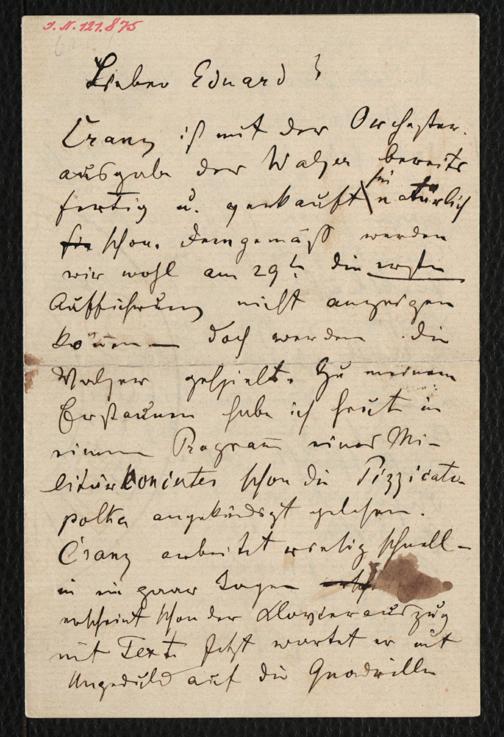 I. N. 121.875
Lieber Eduard!
Cranz ist mit der Orchester-
ausgabe der Walzer bereits
fertig u. verkauft sie natürlich
schon. Demgemäß werden
wir wohl am 29t die erste
Aufführung nicht anzeigen
können — doch werden die
Walzer gespielt. Zu meinem
Erstaunen habe ich heut in
einem Program eines Mi-
litärkonzertes schon die Pizzicato
polka angekündigt gelesen.
Cranz arbeitet schnell –
in ein paar Tagen
erscheint schon der Klavierauszug
mit Text. Jetzt wartet er mit
Ungeduld auf die Quadrille